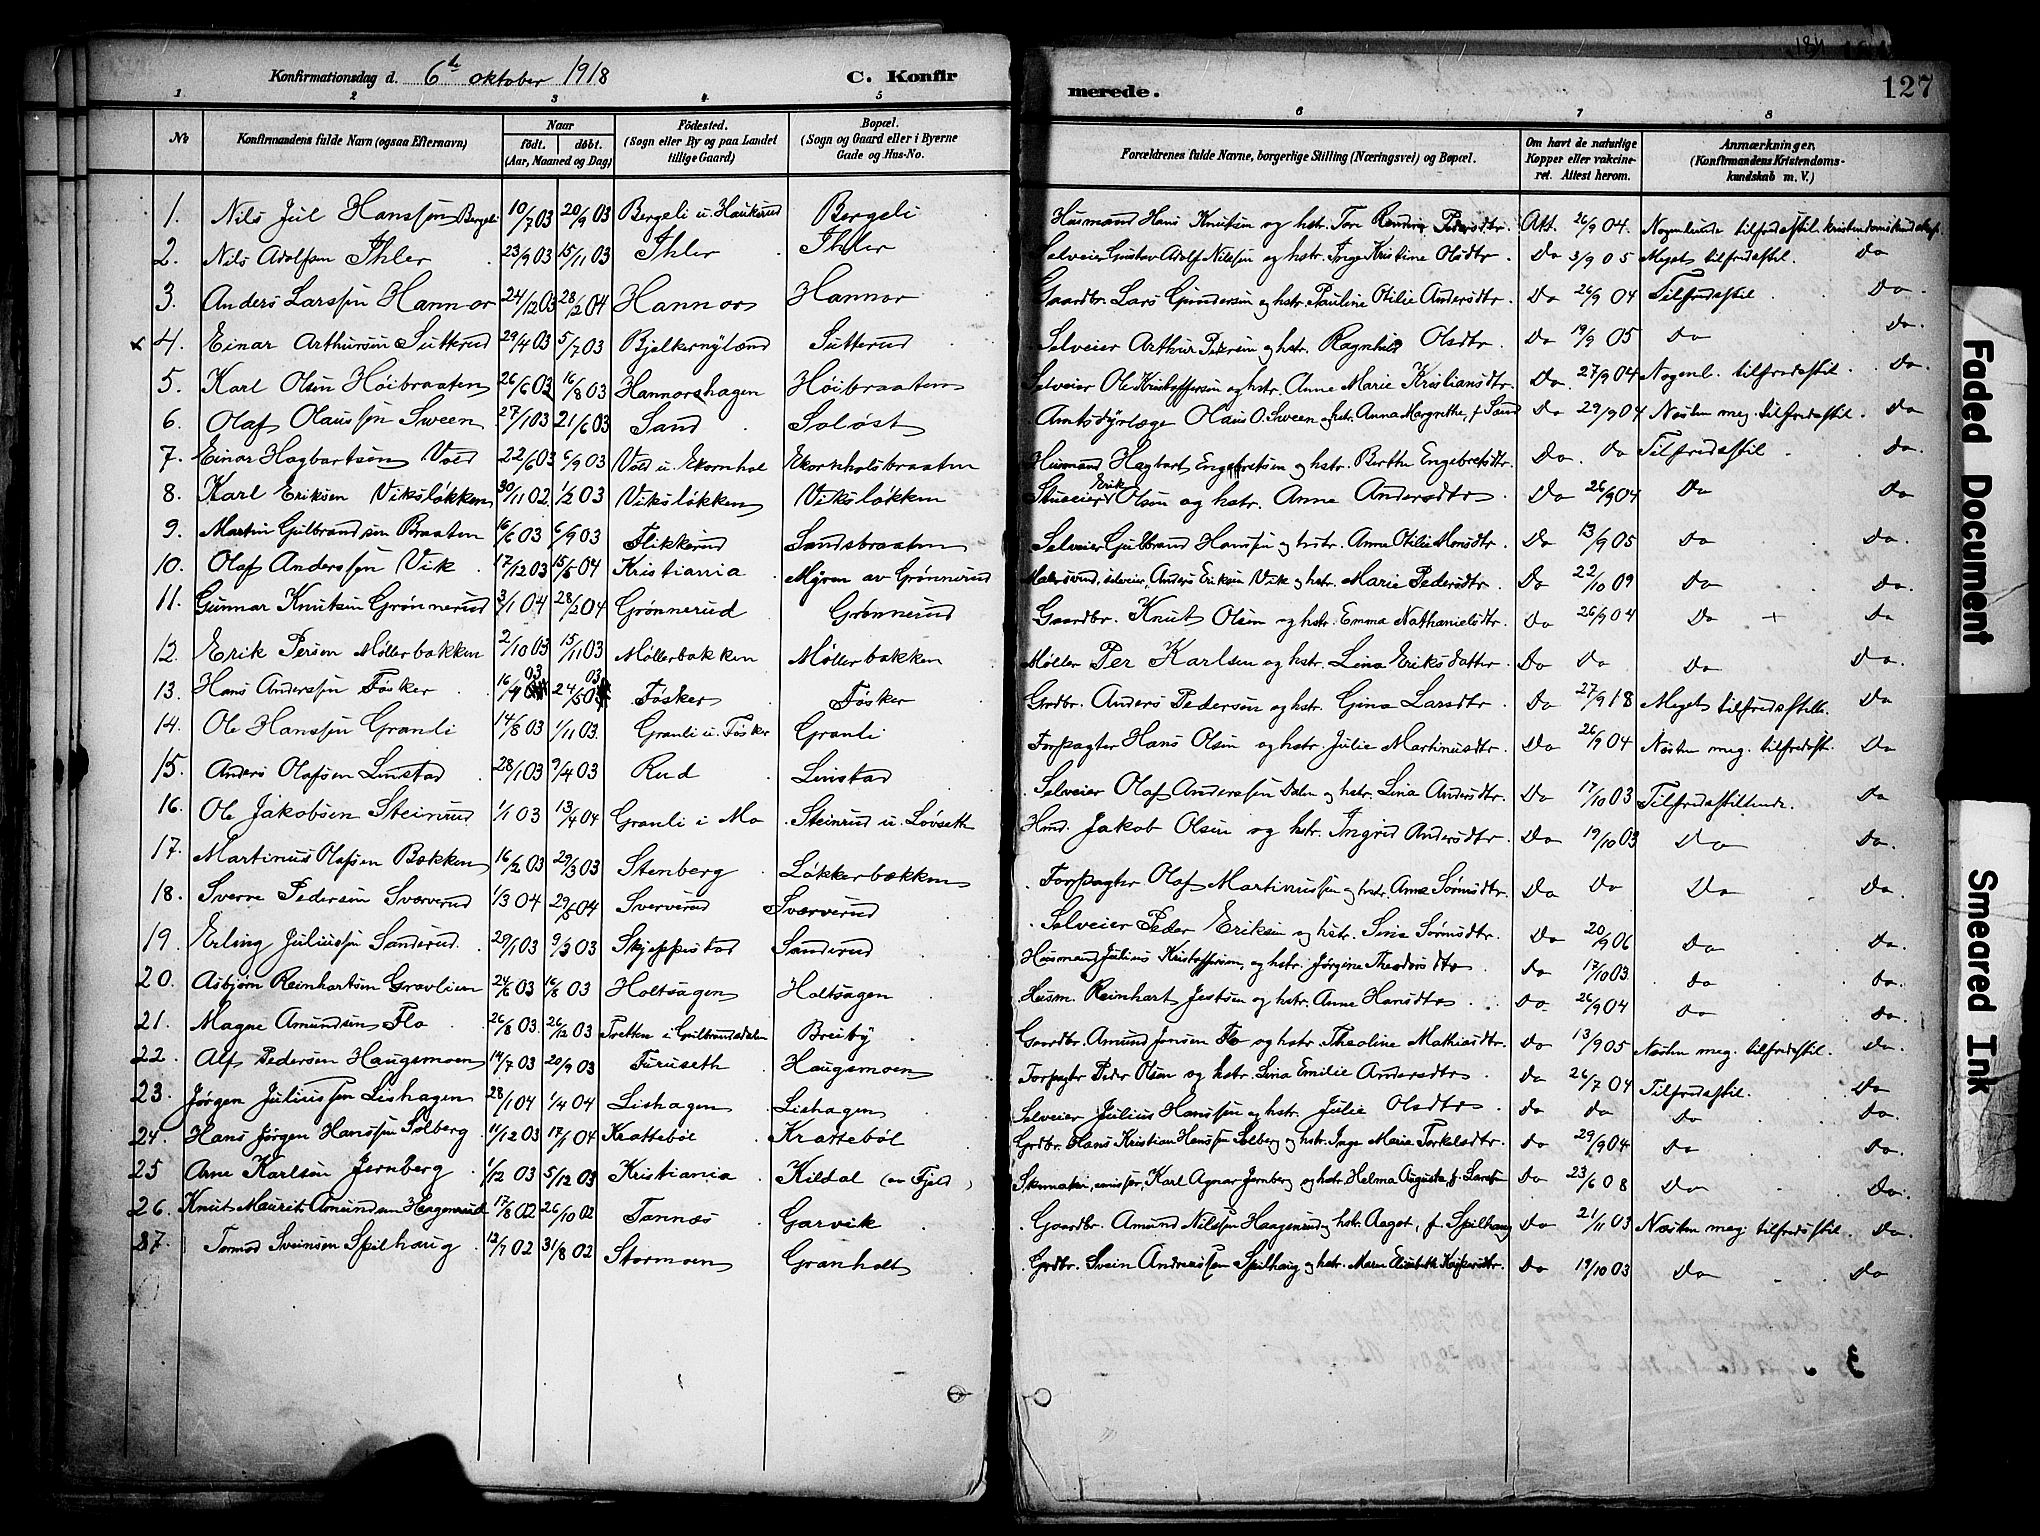 Konfirmationsdag d. 6te oktober 1918 C. Konfir
1 2 3 4 5
№ Konfirmandens fulde Navn (ogsaa Efternavn) Naar født. døbt. (Aar, Maaned og Dag) Födested. (Sogn eller By og paa Landet tillige Gaard) Bopæl. (Sogn og Gaard eller i Byerne Gade og Hus-No.
1. Nils Jul Hanssen Bergeli 10/7 03 20/9 03 Bergeli u. Haukerud Bergeli
2. Nils Adolfsen Ihler 23/9 03 15/11 03 Ihler Ihler
3. Anders Larssen Hannor 24/12 03 28/2 04 Hannor Hannor
x 4. Einar Arthursen Sutterud 29/4 03 5/7 03 Bjelkernyland Sutterud
5. Karl Olsen Høibraaten 26/6 03 16/8 03 Hannorshagen Høibraaten
6. Olaf Olaussen Sveen 27/1 03 21/6 03 Sand Soløst
7. Einar Hagbartsen Vold 22/6 03 6/9 03 Vold u. Ekornhol Ekornholsbraaten
8. Karl Eriksen Viksløkken 30/11 02 1/2 03 Viksløkken Viksløkken
9. Martin Gulbrandsen Braaten 16/6 03 6/9 03 Flikkerud Sandsbraaten
10. Olaf Anderssen Vik 17/12 03 15/5 04 Kristiania Myren av Grønnerud
11. Gunnar Knutsen Grønnerud 3/1 04 28/2 04 Grønnerud Grønnerud
12. Erik Persen Møllerbakken 2/10 03 15/11 03 Møllerbakken Møllerbakken
13. Hans Anderssen Føsker 16/4 03 24/5 03 Føsker Føsker
14. Ole Hanssen Granli 14/8 03 1/11 03 Granli u. Føsker Granli
15. Anders Olafsen Linstad 28/1 03 9/4 03 Rud Linstad
16. Ole Jakobsen Steinrud 1/1 03 13/4 04 Granli i Mo Steinrud u. Løvseth
17. Martinus Olafsen Bækken 16/2 03 29/3 03 Stenberg Løkkerbækken
18. Sverre Pedersen Sværverud 1/3 04 29/5 04 Sververud Sværverud
19. Erling Juliussen Sanderud 29/1 03 9/3 03 Skjeppestad Sanderud
20. Asbjørn Reinhartsen Gravlien 24/6 03 16/8 03 Holtsagen Holtsagen
21. Magne Amundsen Flo 26/8 03 26/12 03 Tretten i Gulbrandsdalen Breiby
22. Alf Pedersen Haugsmoen 14/7 03 20/9 03 Furuseth Haugsmoen
23. Jørgen Juliussen Lishagen 28/1 04 1/4 04 Lishagen Lishagen
24. Hans Jørgen Hanssen Solberg 11/12 03 17/1 04 Krattebøl Krattebøl
25 Arne Karlsen Jernberg 1/12 03 5/12 03 Kristiania Kildal (av Fjeld)
26. Knut Maurits Amundsen Haagenrud 17/8 02 26/10 02 Tannæs Garvik
27. Tormod Sveinsen Spilhaug 12/7 02 31/8 02 Stormoen Granholt
merede. 127
6 7 8
Forældrenes fulde Navne, borgerlige Stilling (Næringsvei) og Bopæl. Om havt de naturlige Kopper eller vakcineret. Attest herom. Anmærkninger. (Konfirmandens Kristendomskundskab m. V.)
Husmand Hans Knutsen og hstr. Tore Randine Pedersdtr. Att. 26/9 04. Nogenlunde tilfredsstil. kristendomskundskap.
Selveier Gustav Adolf Nilssen og hstr. Inge Kristine Olsdtr Do 3/9 05 Meget tilfredsstil. Do
Gaardbr. Lars Gundersen og hstr. Pauline Otilie Andersdtr. Do 26/9 04 Tilfredsstil Do.
Selveier Arthur Petersen og hstr. Ragnhild Olsdtr. Do 19/9 05 Do Do.
Selveier Ole Kristoffersen og hstr. Anne Marie Kristiansdtr. Do. 27/9 04 Nogenl. tilfredsstil. Do.
Amtsdyrlæge Olaus O. Sveen og hstr. Anna Margrethe, f. Sand Do 29/9 04 Næsten meg. tilfredsstil. Do
Husmand Hagbart Engebretsen og hstr. Berthe Engebretsdtr. Do. Do Tilfredsstil. Do.
Selveier Erik Olsen og hstr. Anne Andersdtr. Do 26/9 04 Do Do
Selveier Gulbrand Hanssen og hstr. Anna Otilie Monsdtr. Do 13/9 05 Do Do.
Malersvend, selveier, Anders Eriksen Vik og hstr. Marie Pedersdtr. Do 22/10 09 Do Do.
Gaardbr. Knut Olsen og hstr. Emma Nathanielsdtr. Do 26/9 04 Do + Do
Møller Per Karlsen og hstr. Lina Eriksdatter Do Do Do Do.
Grdbr. Anders Pedersen og hstr. Gina Larsdtr. Do 27/9 18 Meget tilfredsstille. Do
Forpagter Hans Olsen og hstr. Julie Martinusdtr. Do 26/9 04 Næsten meg. tilfredsstil. Do
Selveier Olaf Anderssen Dalen og hstr. Lina Andersdtr. Do 17/10 03 Tilfredsstillende. Do
Hmd. Jakob Olsen og hstr. Ingrid Andersdtr. Do 19/10 03 Do Do.
Forpagter Olaf Martinussen og hstr. Anna Sørensdtr. Do Do Do Do.
Selveier Peder Eriksen og hstr. Sina Sørensdtr. Do 20/9 06 Do Do.
Husmand Julius Kristoffersen, og hstr. Jørgine Theodorsdtr. Do 17/10 03. Do Do.
Husm. Reinhart Jestsen og hstr. Anne Hansdtr. Do. 26/9 04 Do Do.
Gaardbr. Amund Jonsen Flo og hstr. Theoline Mathiasdtr. Do 13/9 05 Næsten meg. tilfredsstil. Do.
Forpagter Peder Olsen og hstr. Lina Emilie Andersdtr. Do 26/7 04 Tilfredsstil. Do
Selveier Julius Hanssen og hstr. Julie Olsdtr. Do Do Do Do.
Grdbr. Hans Kristian Hanssen Solberg og hstr. Inge Marie Torkelsdtr. Do 29/9 04 Do Do.
Karl Agnar Jernberg og hstr. Helma Augusta, f. Larsen Do 23/6 08 Do Do.
Gaardbr. Amund Nilssen Haagenrud og hstr. Aagot, f. Spilhaug Do 21/11 03 Næsten meg. tilfredsstil. Do.
Grdbr. Svein Andreassen Spilhaug og hstr. Maren Elisabeth Kaspersdtr. Do 19/10 03 Do Do
Faded Document
Smeared Ink